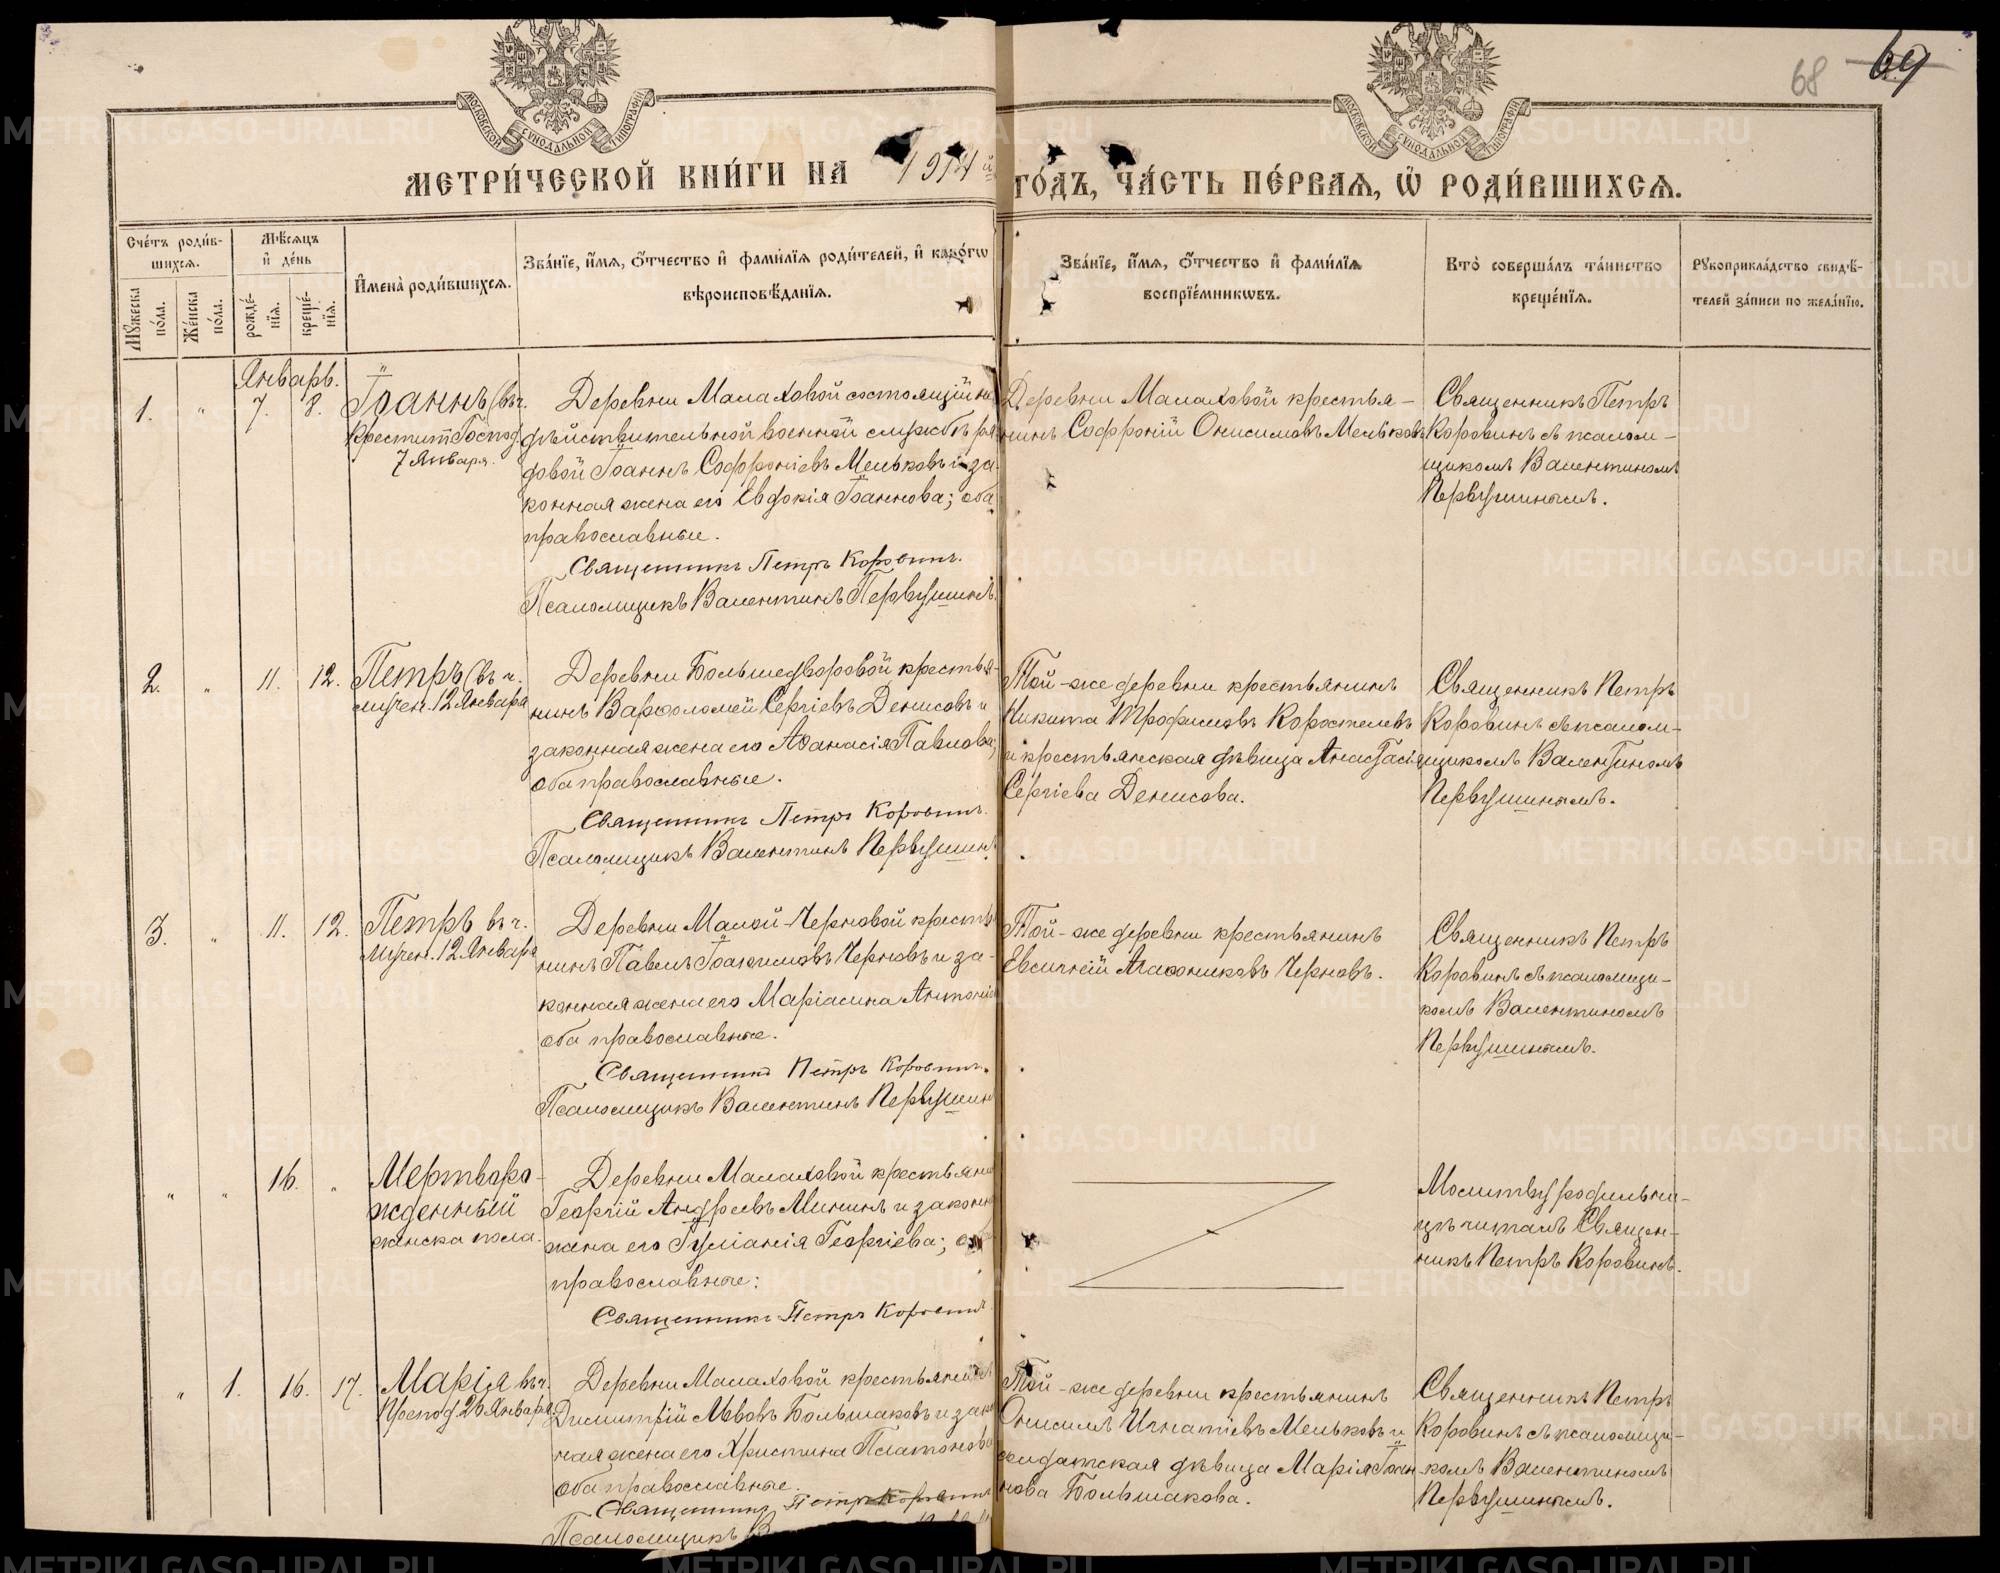 68 69
МОСКОВСКОЙ СУНОДАЛЬНОЙ ТИПОГРАФІИ
МОСКОВСКОЙ СУНОДАЛЬНОЙ ТИПОГРАФІИ
МЕТРИ́ЧЕСКОЙ КНИ́ГИ НА 1914 й ГО́ДЪ, ЧА́СТЬ ПЕ́РВАѦ, Ѿ РОДИ́ВШИХСѦ.
Сче́тъ роди́в-
шихсѧ.
Мꙋжеска по́ла.
Же́нска по́ла.
Мѣ́сѧцъ и де́нь
рожде́-нїѧ.
креще́-нїѧ.
Имена̀ роди́вшихсѧ.
Зва́нїе, и́мѧ, ѻ҆́тчество и фами́лїѧ роди́телей, и како́гѡ
вѣроисповѣ́данїѧ.
Зва́нїе, и́мѧ, ѻ҆́тчество и фами́лїѧ
воспрїе́мникѡвъ.
Кто̀ соверша́лъ та́инство
креще́нїѧ.
Рꙋкоприкла́дство свидѣ́-
телей за́писи по жела́нїю.
Январь.
1. " 7. 8.
Іоаннъ (въ ч.
Крестит. Господ.
7 Января.
Деревни Малаховой состоящій на
дѣйствительной военной службѣ ря
довой Іоаннъ Софроніевъ Мельковъ и за
конная жена его Евдокія Іоаннова; оба
православные.
Священникъ Петръ Коровинъ.
Псаломщикъ Валентинъ Первушинъ.
Деревни Малаховой крестья-
нинъ Софроній Онисимовъ Мельковъ
Священникъ Петръ
Коровинъ съ псалом-
щикомъ Валентиномъ
Первушинымъ.
2. " 11. 12.
Петръ (въ ч.
мучен. 12 Января
Деревни Большедворовой крестья-
нинъ Варѳоломей Сергіевъ Денисовъ и
законная жена его Аѳанасія Павлова;
оба православные.
Священникъ Петръ Коровинъ.
Псаломщикъ Валентинъ Первушинъ
Той-же деревни крестьянинъ
Никита Трофимовъ Коростелевъ
и крестьянская дѣвица Анастасія
Сергіева Денисова.
Священникъ Петръ
Коровинъ съ псалом-
щикомъ Валентиномъ
Первушинымъ.
3. " 11. 12.
Петръ въ ч.
мучен. 12 Января
Деревни Малой-Черновой кресть
нинъ Павелъ Іоакимовъ Черновъ и за-
конная жена его Маріамна Антоніе
оба православные.
Священникъ Петръ Коровинъ.
Псаломщикъ Валентинъ Первушин
Той-же деревни крестьянинъ
Евсигній Агаѳониковъ Черновъ.
Священникъ Петръ
Коровинъ съ псаломщи-
комъ Валентиномъ
Первушинымъ.
" " 16. "
Мертворо-
жденный
женска пола.
Деревни Малаховой крестьяни
Георгій Андреевъ Мининъ и законн
жена его Іуліанія Георгіева;
православные:
Священникъ Петръ Коровинъ
Молитву родильни-
цѣ читалъ Священ-
никъ Петръ Коровинъ.
" 1. 16. 17.
Марія въ ч.
Препод. 26 Января
Деревни Малаховой крестьянинъ
Димитрій Львовъ Большаковъ и закон
ная жена его Христина Платонова
оба православные.
Священникъ Петръ Коровинъ
Псаломщикъ
Той-же деревни крестьянинъ
Онисимъ Игнатіевъ Мельковъ и
солдатская дѣвица Марія Іоан
нова Большакова.
Священникъ Петръ
Коровинъ съ псаломщи-
комъ Валентиномъ
Первушинымъ.
METRIKI.GASO-URAL.RU